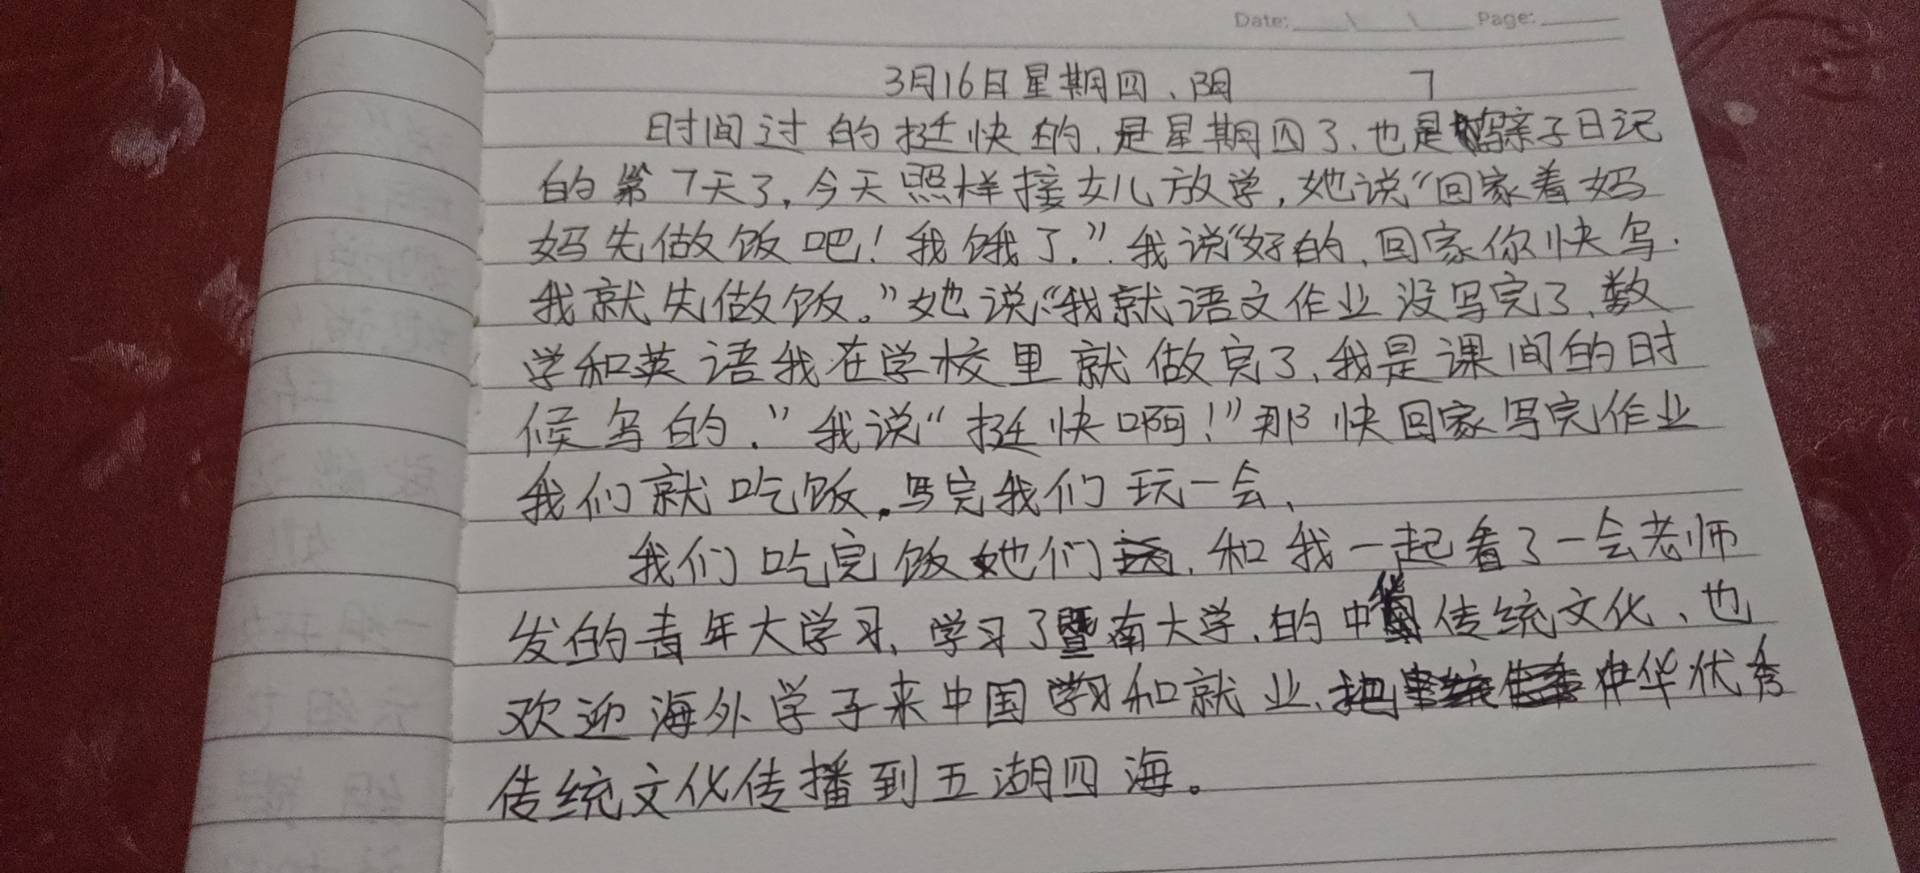 Date: Page:
3月16日星期四、阴 7
时间过的挺快的,是星期四了、也是写亲子日记
的第7天了,今天照样接女儿放学,她说“回家着妈
妈先做饭吧!我饿了.”我说“好的,回家你快写.
我就先做饭。”她说“我就语文作业没写完了、数
学和英语我在学校里就做完了、我是课间的时
候写的.”我说“挺快啊!”那快回家写完作业
我们就吃饭.写完我们玩一会、
我们吃完饭她们.和我一起看了一会老师
发的青年大学习、学习了暨南大学、的中华传统文化、也
欢迎海外学子来中国学习和就业、把中华优秀
传统文化传播到五湖四海。